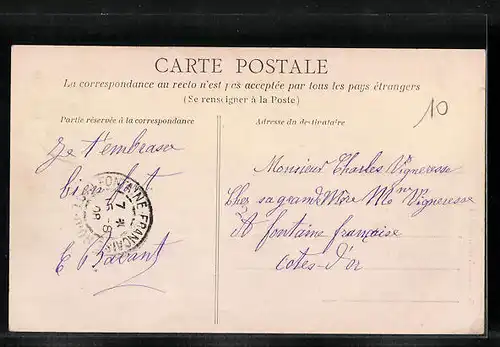 CARTE POSTALE
La correspondance au recto n'est pas acceptée par tous les pays étrangers
(Se renseigner à la Poste)
Partie réservée à la correspondance
Adresse du destinataire
10
Je t'embrasse
bien fort
E Bavant
FONTAINE-FRANÇAISE
Monsieur Charles Vigneresse
Chez sa grand Mère Mme Vigneresse
A fontaine française
Cotes-d'or